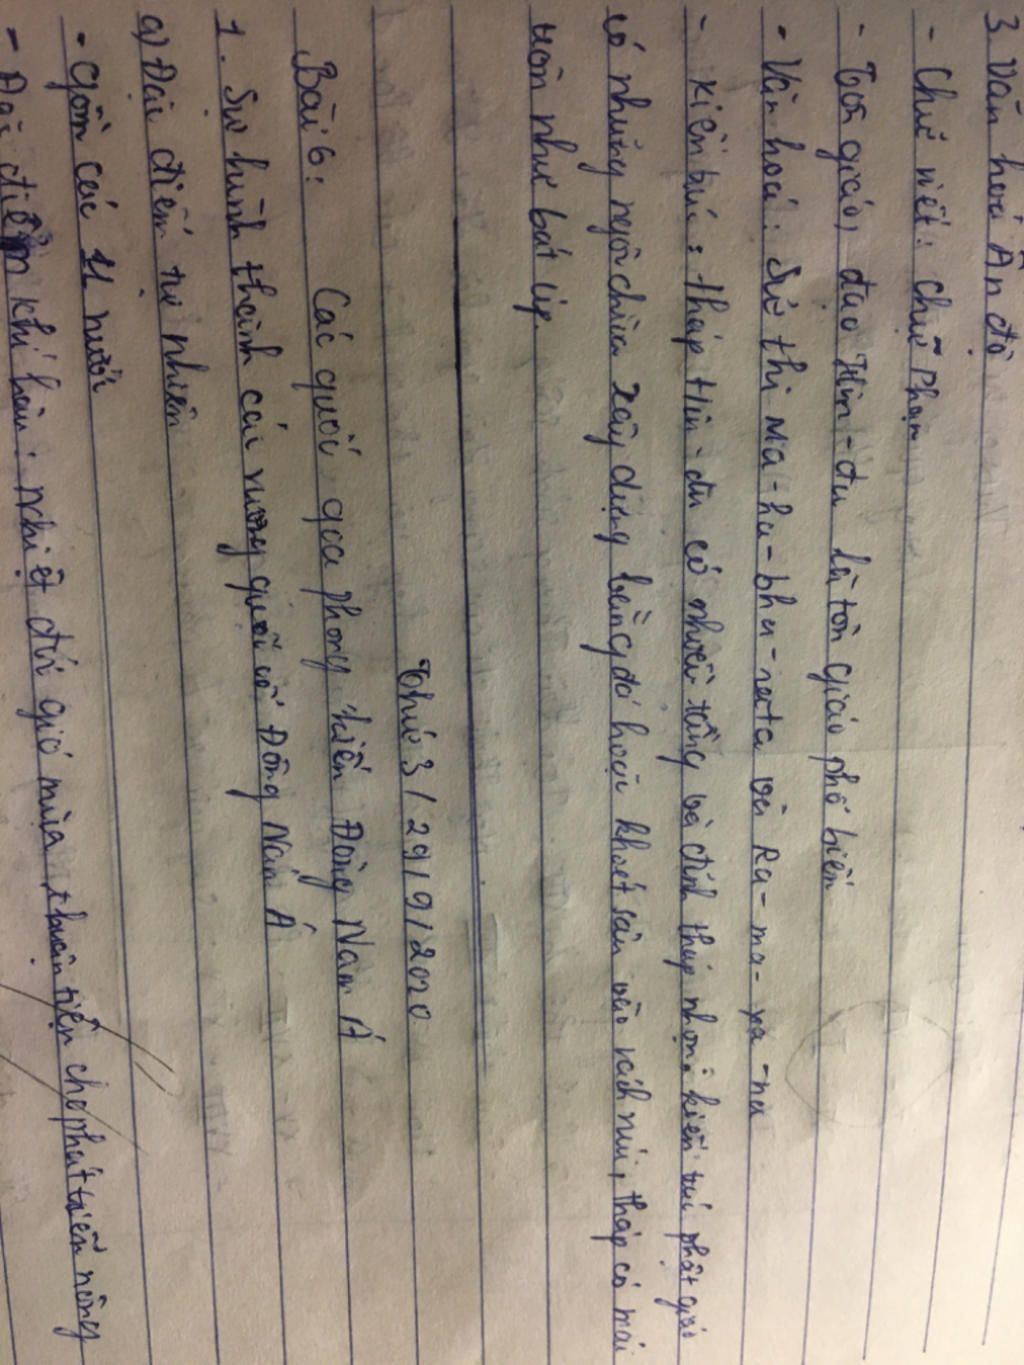 3. Văn hoá Ấn độ
- Chữ viết: chữ Phạn
- Tôn giáo, đạo Hin-đu là tôn giáo phổ biến
- Văn hoá: Sử thi Ma-ha-bha-rata và Ra-ma-ya-na
- Kiến trúc: tháp Hin-đu có nhiều tầng và đỉnh tháp nhọn. kiến trúc phật giáo
có những ngôi chùa xây dựng bằng đá hoặc khoét sâu vào vách núi, tháp có mái
tròn như bát úp.
Thứ 3 / 29 / 9 / 2020
Bài 6: Các quốc gia phong kiến Đông Nam Á
1. Sự hình thành các vương quốc cổ Đông Nam Á
a) Đặc điểm tự nhiên
- Gồm các 11 nước
- Đặc điểm khí hậu: nhiệt đới gió mùa, thuận tiện cho phát triển nông